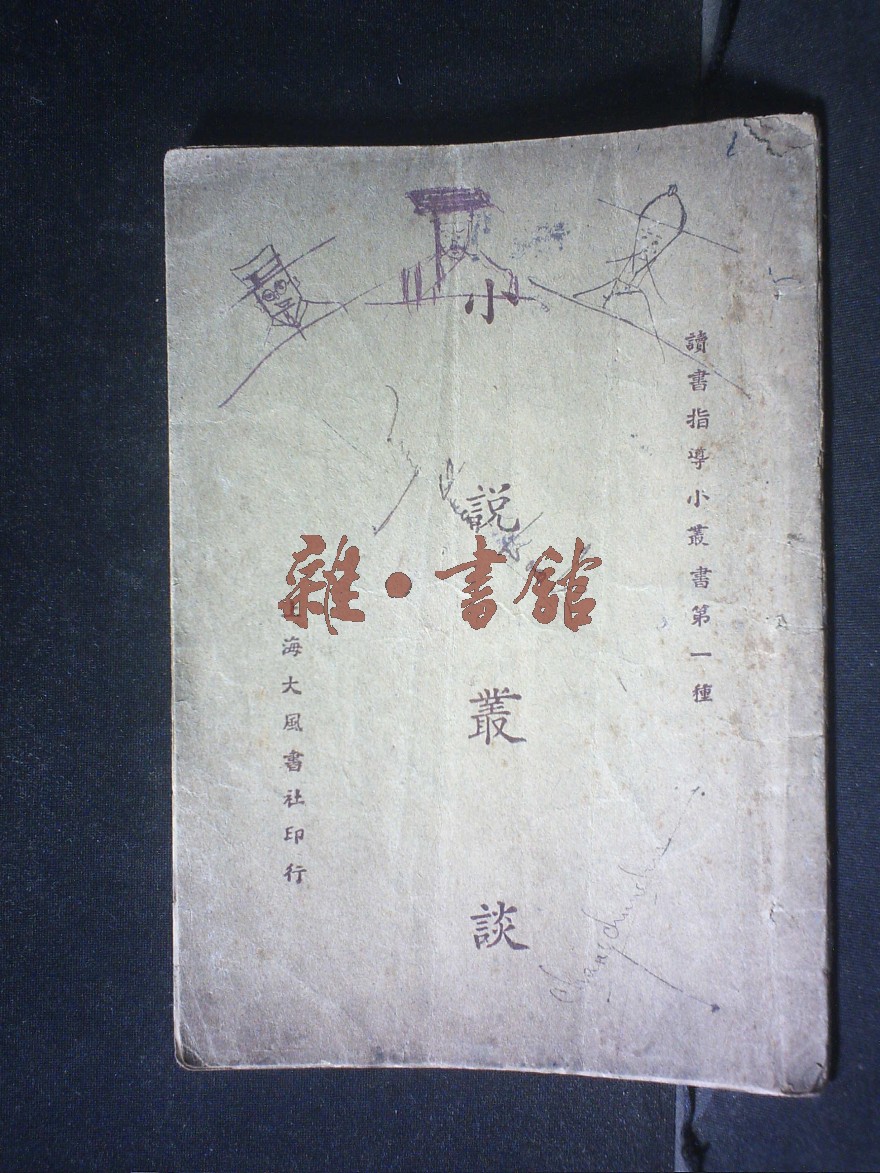 讀書指導小叢書第一種
小說叢談
上海大風書社印行
雜·書館